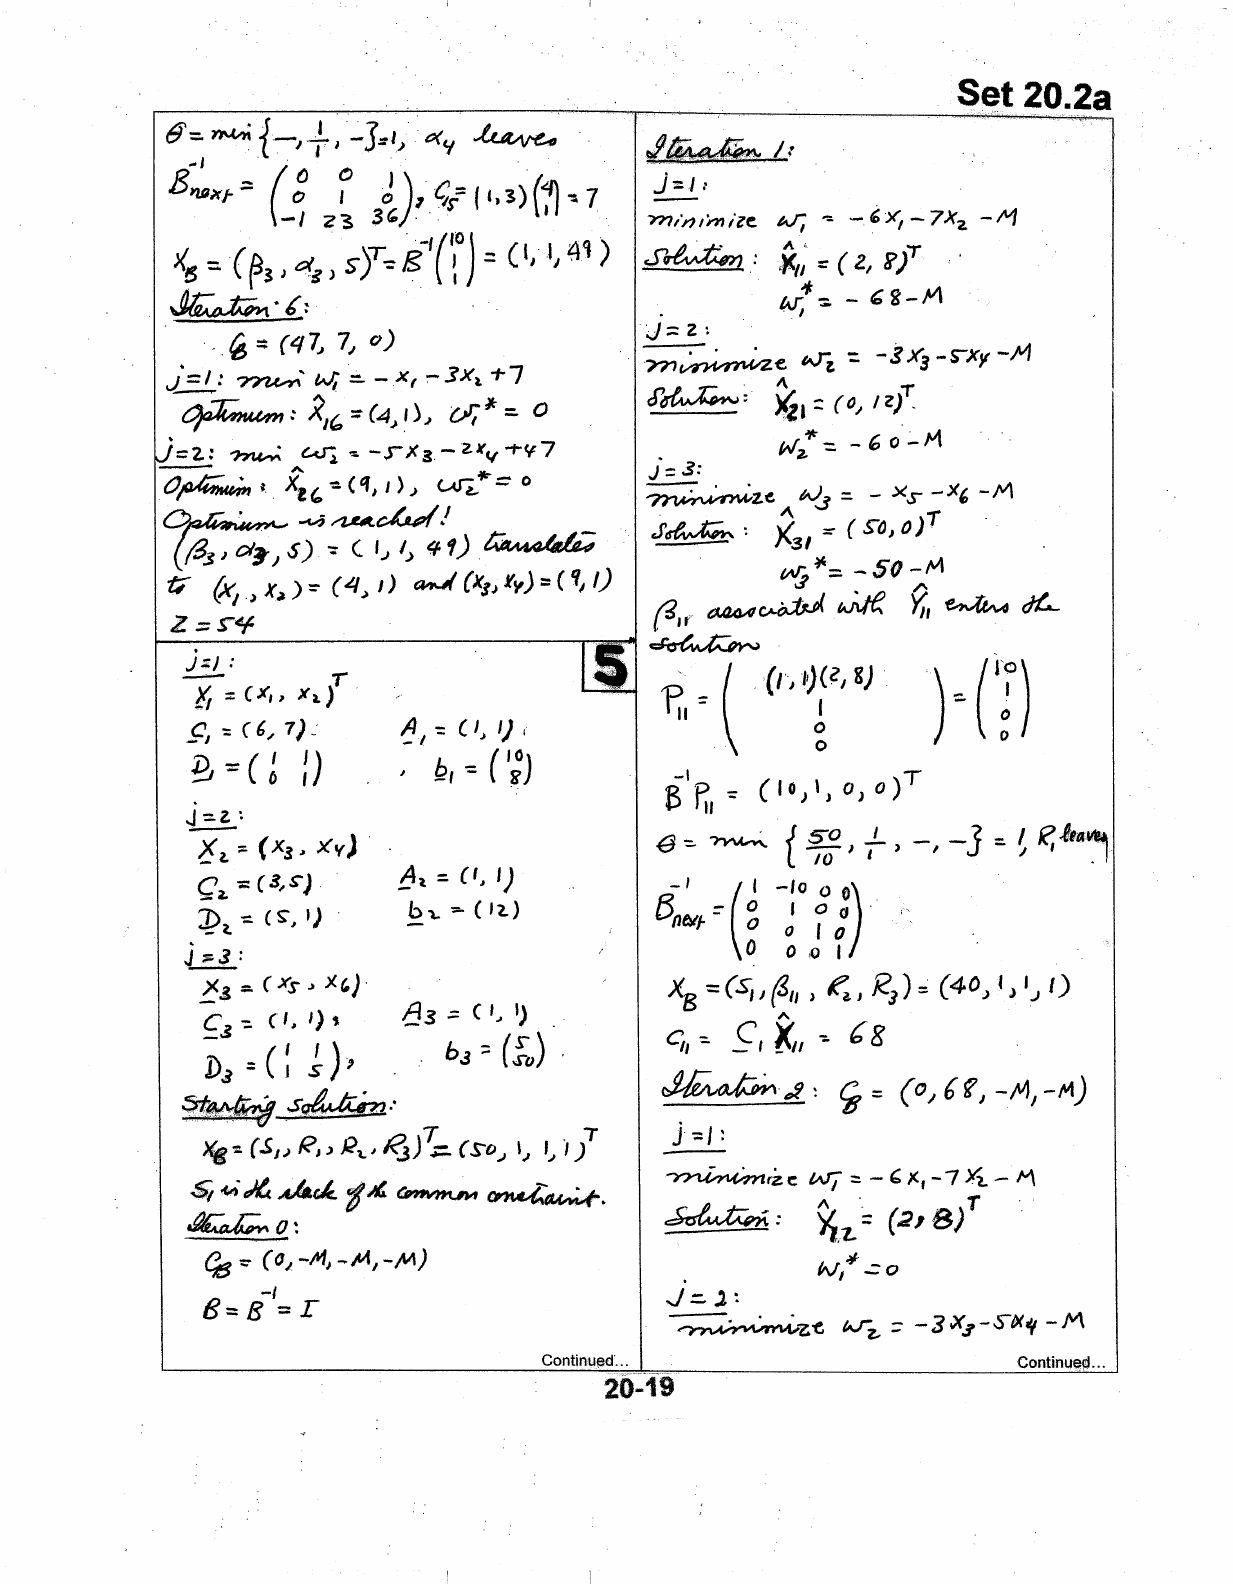 Set 20.2a
θ = min {—, 1/1, —} = 1, α₄ leaves
B⁻¹next = (0 0 1; 0 1 0; -1 23 36), C₁₅ = (1,3)(4; 1) = 7
X_B = (β₃, α₃, S)ᵀ = B⁻¹(10; 1; 1) = (1, 1, 49)
Iteration 6:
C_B = (47, 7, 0)
j=1: min w₁ = -x₁ - 3x₂ + 7
Optimum: X̂₁₆ = (4,1), w₁* = 0
j=2: min w₂ = -5x₃ - 2x₄ + 47
Optimum: X̂₂₆ = (9,1), w₂* = 0
Optimum is reached!
(β₃, α₃, S) = (1, 1, 49) translates
to (x₁, x₂) = (4, 1) and (x₃, x₄) = (9, 1)
Z = 54
5
j=1:
X₁ = (x₁, x₂)ᵀ
C₁ = (6, 7). A₁ = (1, 1)
D₁ = (1 1; 0 1) , b₁ = (10; 8)
j=2:
X₂ = (x₃, x₄)
C₂ = (3,5) A₂ = (1, 1)
D₂ = (5, 1) b₂ = (12)
j=3:
X₃ = (x₅, x₆)
C₃ = (1, 1), A₃ = (1, 1)
D₃ = (1 1; 1 5), b₃ = (5; 50)
Starting solution:
X_B = (S₁, R₁, R₂, R₃)ᵀ = (50, 1, 1, 1)ᵀ
S₁ is the slack of the common constraint.
Iteration 0:
C_B = (0, -M, -M, -M)
B = B⁻¹ = I
Continued...
Iteration 1:
j=1:
minimize w₁ = -6x₁ - 7x₂ - M
Solution: X̂₁₁ = (2, 8)ᵀ
w₁* = -68 - M
j=2:
minimize w₂ = -3x₃ - 5x₄ - M
Solution: X̂₂₁ = (0, 12)ᵀ.
w₂* = -60 - M
j=3:
minimize w₃ = -x₅ - x₆ - M
Solution: X̂₃₁ = (50, 0)ᵀ
w₃* = -50 - M
β₁₁ associated with Ŷ₁₁ enters the
solution
P₁₁ = ((1,1)(2,8); 1; 0; 0) = (10; 1; 0; 0)
B⁻¹P₁₁ = (10, 1, 0, 0)ᵀ
θ = min {50/10, 1/1, —, —} = 1, R₁ leaves
B⁻¹next = (1 -10 0 0; 0 1 0 0; 0 0 1 0; 0 0 0 1)
X_B = (S₁, β₁₁, R₂, R₃) = (40, 1, 1, 1)
C₁₁ = C₁X̂₁₁ = 68
Iteration 2: C_B = (0, 68, -M, -M)
j=1:
minimize w₁ = -6x₁ - 7x₂ - M
Solution: X̂₁₂ = (2, 8)ᵀ
w₁* = 0
j=2:
minimize w₂ = -3x₃ - 5x₄ - M
Continued...
20-19